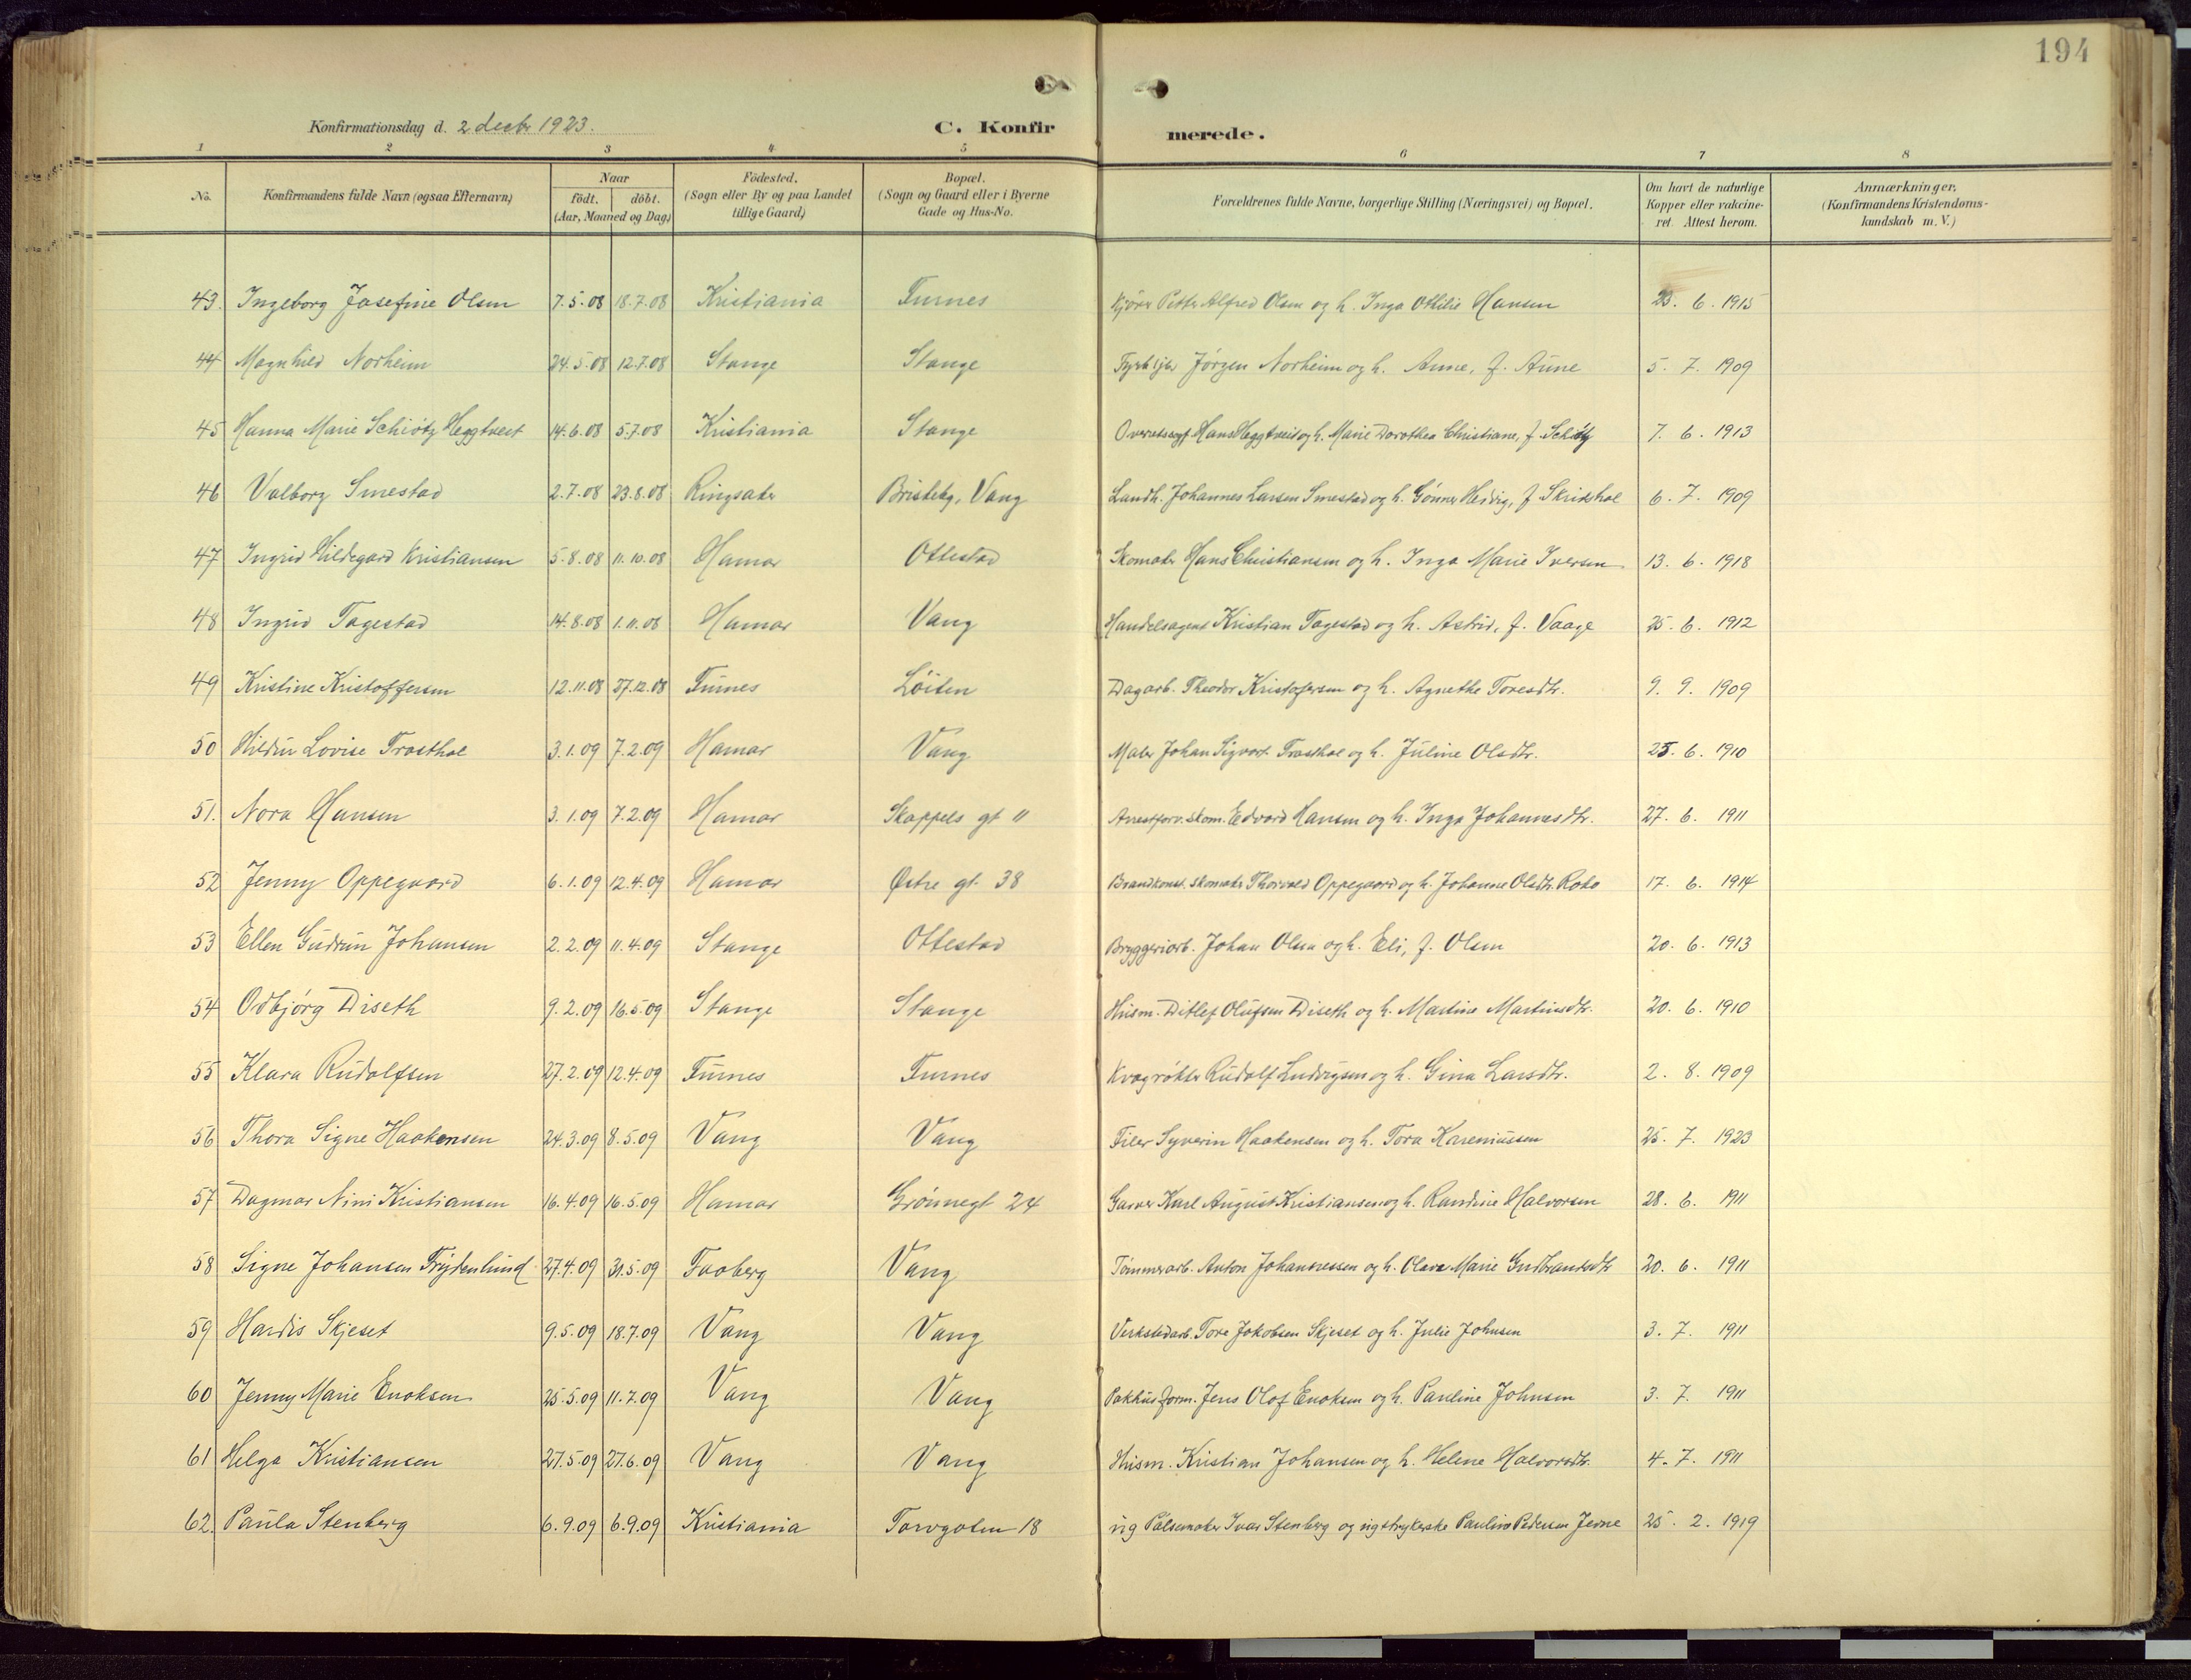 194
Konfirmationsdag d. 2 decbr 1923.
C. Konfirmerede.
1 2 3 4 5 6 7 8
No. Konfirmandens fulde Navn (ogsaa Efternavn) Naar födt. döbt. (Aar, Maaned og Dag) Födested. (Sogn eller By og paa Landet tillige Gaard) Bopæl. (Sogn og Gaard eller i Byerne Gade og Hus-No. Forældrenes fulde Navne, borgerlige Stilling (Næringsvei) og Bopæl. Om havt de naturlige Kopper eller vakcineret. Attest herom. Anmærkninger. (Konfirmandens Kristendomskundskab m. V.)
43. Ingeborg Josefine Olsen 7.5.08 18.7.08 Kristiania Furnes Kjører Petter Alfred Olsen og h. Inga Othilie Hansen 23. 6. 1915
44 Magnhild Norheim 24.5.08 12.7.08 Stange Stange Jørgen Norheim og h. Anne, f. Aune 5. 7. 1909
45 Hanna Marie Schiøtz Heggtveit 14.6.08 5.7.08 Kristiania Stange Overretssagf. Hans Heggtveit og h. Marie Dorothea Christiane, f. Schiøtz 7. 6. 1913
46 Valborg Smestad 2.7.08 23.8.08 Ringsaker Bristeby, Vang Landh. Johannes Larsen Smestad og h. Gunnor Hedvig, f. Skridshol 6. 7. 1909
47 Ingrid Hildegard Kristiansen 5.8.08 11.10.08 Hamar Ottestad Skomaker Hans Christiansen og h. Inga Marie Iversen 13. 6. 1918
48 Ingrid Tagestad 14.8.08 1.11.08 Hamar Vang Handelsagent Kristian Tagestad og h. Astrid, f. Vaage 25. 6. 1912
49 Kristine Kristoffersen 12.11.08 27.12.08 Furnes Löiten Dagarb. Theodor Kristofersen og h. Agnethe Toresdtr. 9. 9. 1909
50 Hildur Lovise Frosthol 3.1.09 7.2.09 Hamar Vang Maler Johan Sigvart Frosthol og h. Juline Olsdtr. 25. 6. 1910
51. Nora Hansen 3.1.09 7.2.09 Hamar Skappels gt 11 Arrestforv. skom. Edvard Hansen og h. Inga Johannesdtr. 27. 6. 1911
52 Jenny Oppegaard 6.1.09 12.4.09 Hamar Østre gt. 38 Brandkonst. skomaker Thorvald Oppegaard og h. Johanne Olsdtr. Roko 17. 6. 1914
53 Ellen Gudrun Johansen 2.2.09 11.4.09 Stange Ottestad Bryggeriarb. Johan Olsen og h. Eli, f. Olsen 20. 6. 1913
54 Odbjørg Diseth 9.2.09 16.5.09 Stange Stange Husm. Ditlef Olufsen Diseth og h. Martine Martinsdtr. 20. 6. 1910
55 Klara Rudolfsen 27.2.09 12.4.09 Furnes Furnes Kvægrøkter Rudolf Ludvigsen og h. Gina Larsdtr. 2. 8. 1909
56 Thora Signe Haakensen 24.3.09 8.5.09 Vang Vang Filer Syverin Haakensen og h. Tora Kareniussen 25. 7. 1923
57 Dagmar Nini Kristiansen 16.4.09 16.5.09 Hamar Grönnegt 24 Garver Karl August Kristiansen og h. Randine Halvorsen 28. 6. 1911
58 Signe Johansen Frydenlund 27.4.09 31.5.09 Faaberg Vang Tømmerarb. Anton Johannessen og h. Olava Marie Gudbrandsdtr 20. 6. 1911
59 Hardis Skjeset 9.5.09 18.7.09 Vang Vang Verkstedarb. Tore Jakobsen Skjeset og h. Julie Johnsen 3. 7. 1911
60 Jenny Marie Enoksen 25.5.09 11.7.09 Vang Vang Pakhusform. Jens Olof Enoksen og h. Pauline Johnsen 3. 7. 1911
61 Helga Kristiansen 27.5.09 27.6.09 Vang Vang Husm. Kristian Johansen og h. Helene Halvorsdtr. 4. 7. 1911
62. Paula Stenberg 6.9.09 6.9.09 Kristiania Torvgaten 18 ug Pølsemaker Ivar Stenberg og ug strykerske Pauline Pedersen Jevne 25. 2. 1919